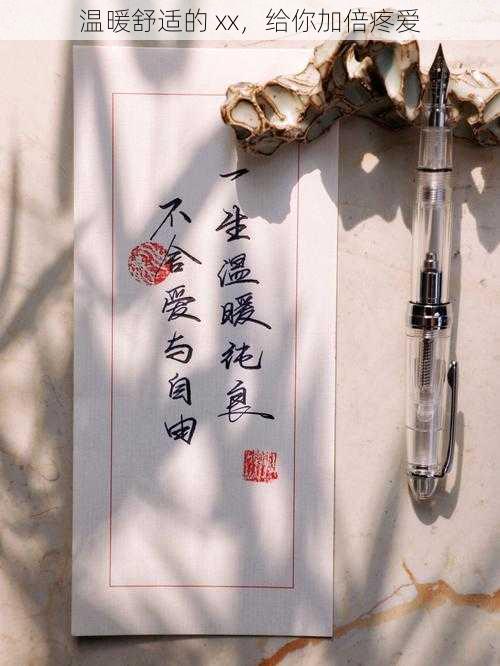 温暖舒适的 xx，给你加倍疼爱
一生温暖纯良
不舍爱与自由